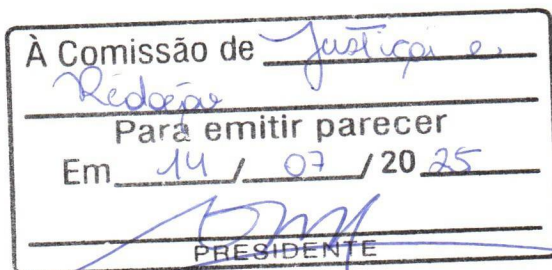 À Comissão de Justiça e
Redação
Para emitir parecer
Em 14 / 07 / 20 25
PRESIDENTE